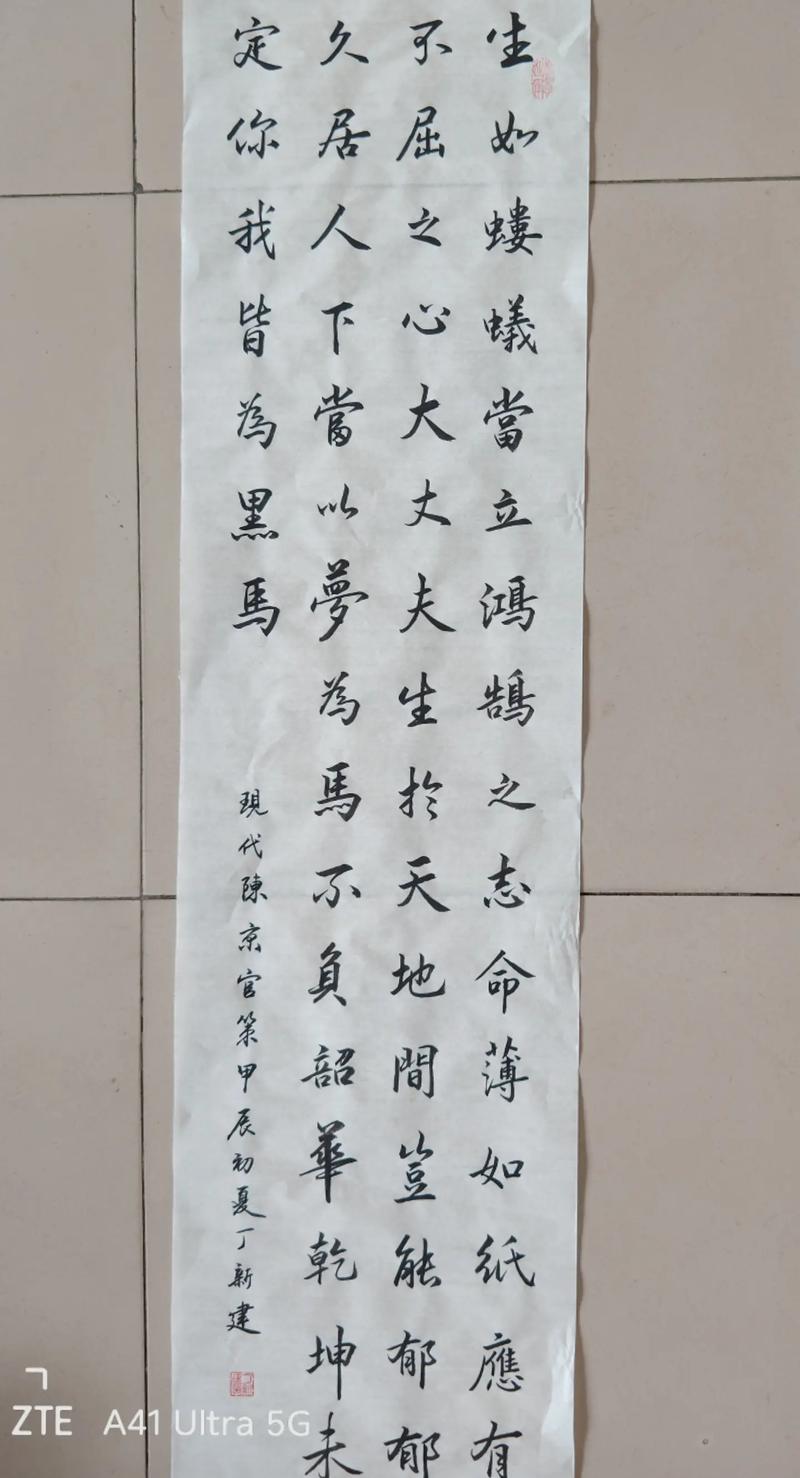 生如螻蟻當立鴻鵠之志命薄如紙應有
不屈之心大丈夫生於天地間豈能郁郁
久居人下當以夢為馬不負韶華乾坤未
定你我皆為黑馬
現代陳京官策甲辰初夏丁新建
ZTE A41 Ultra 5G